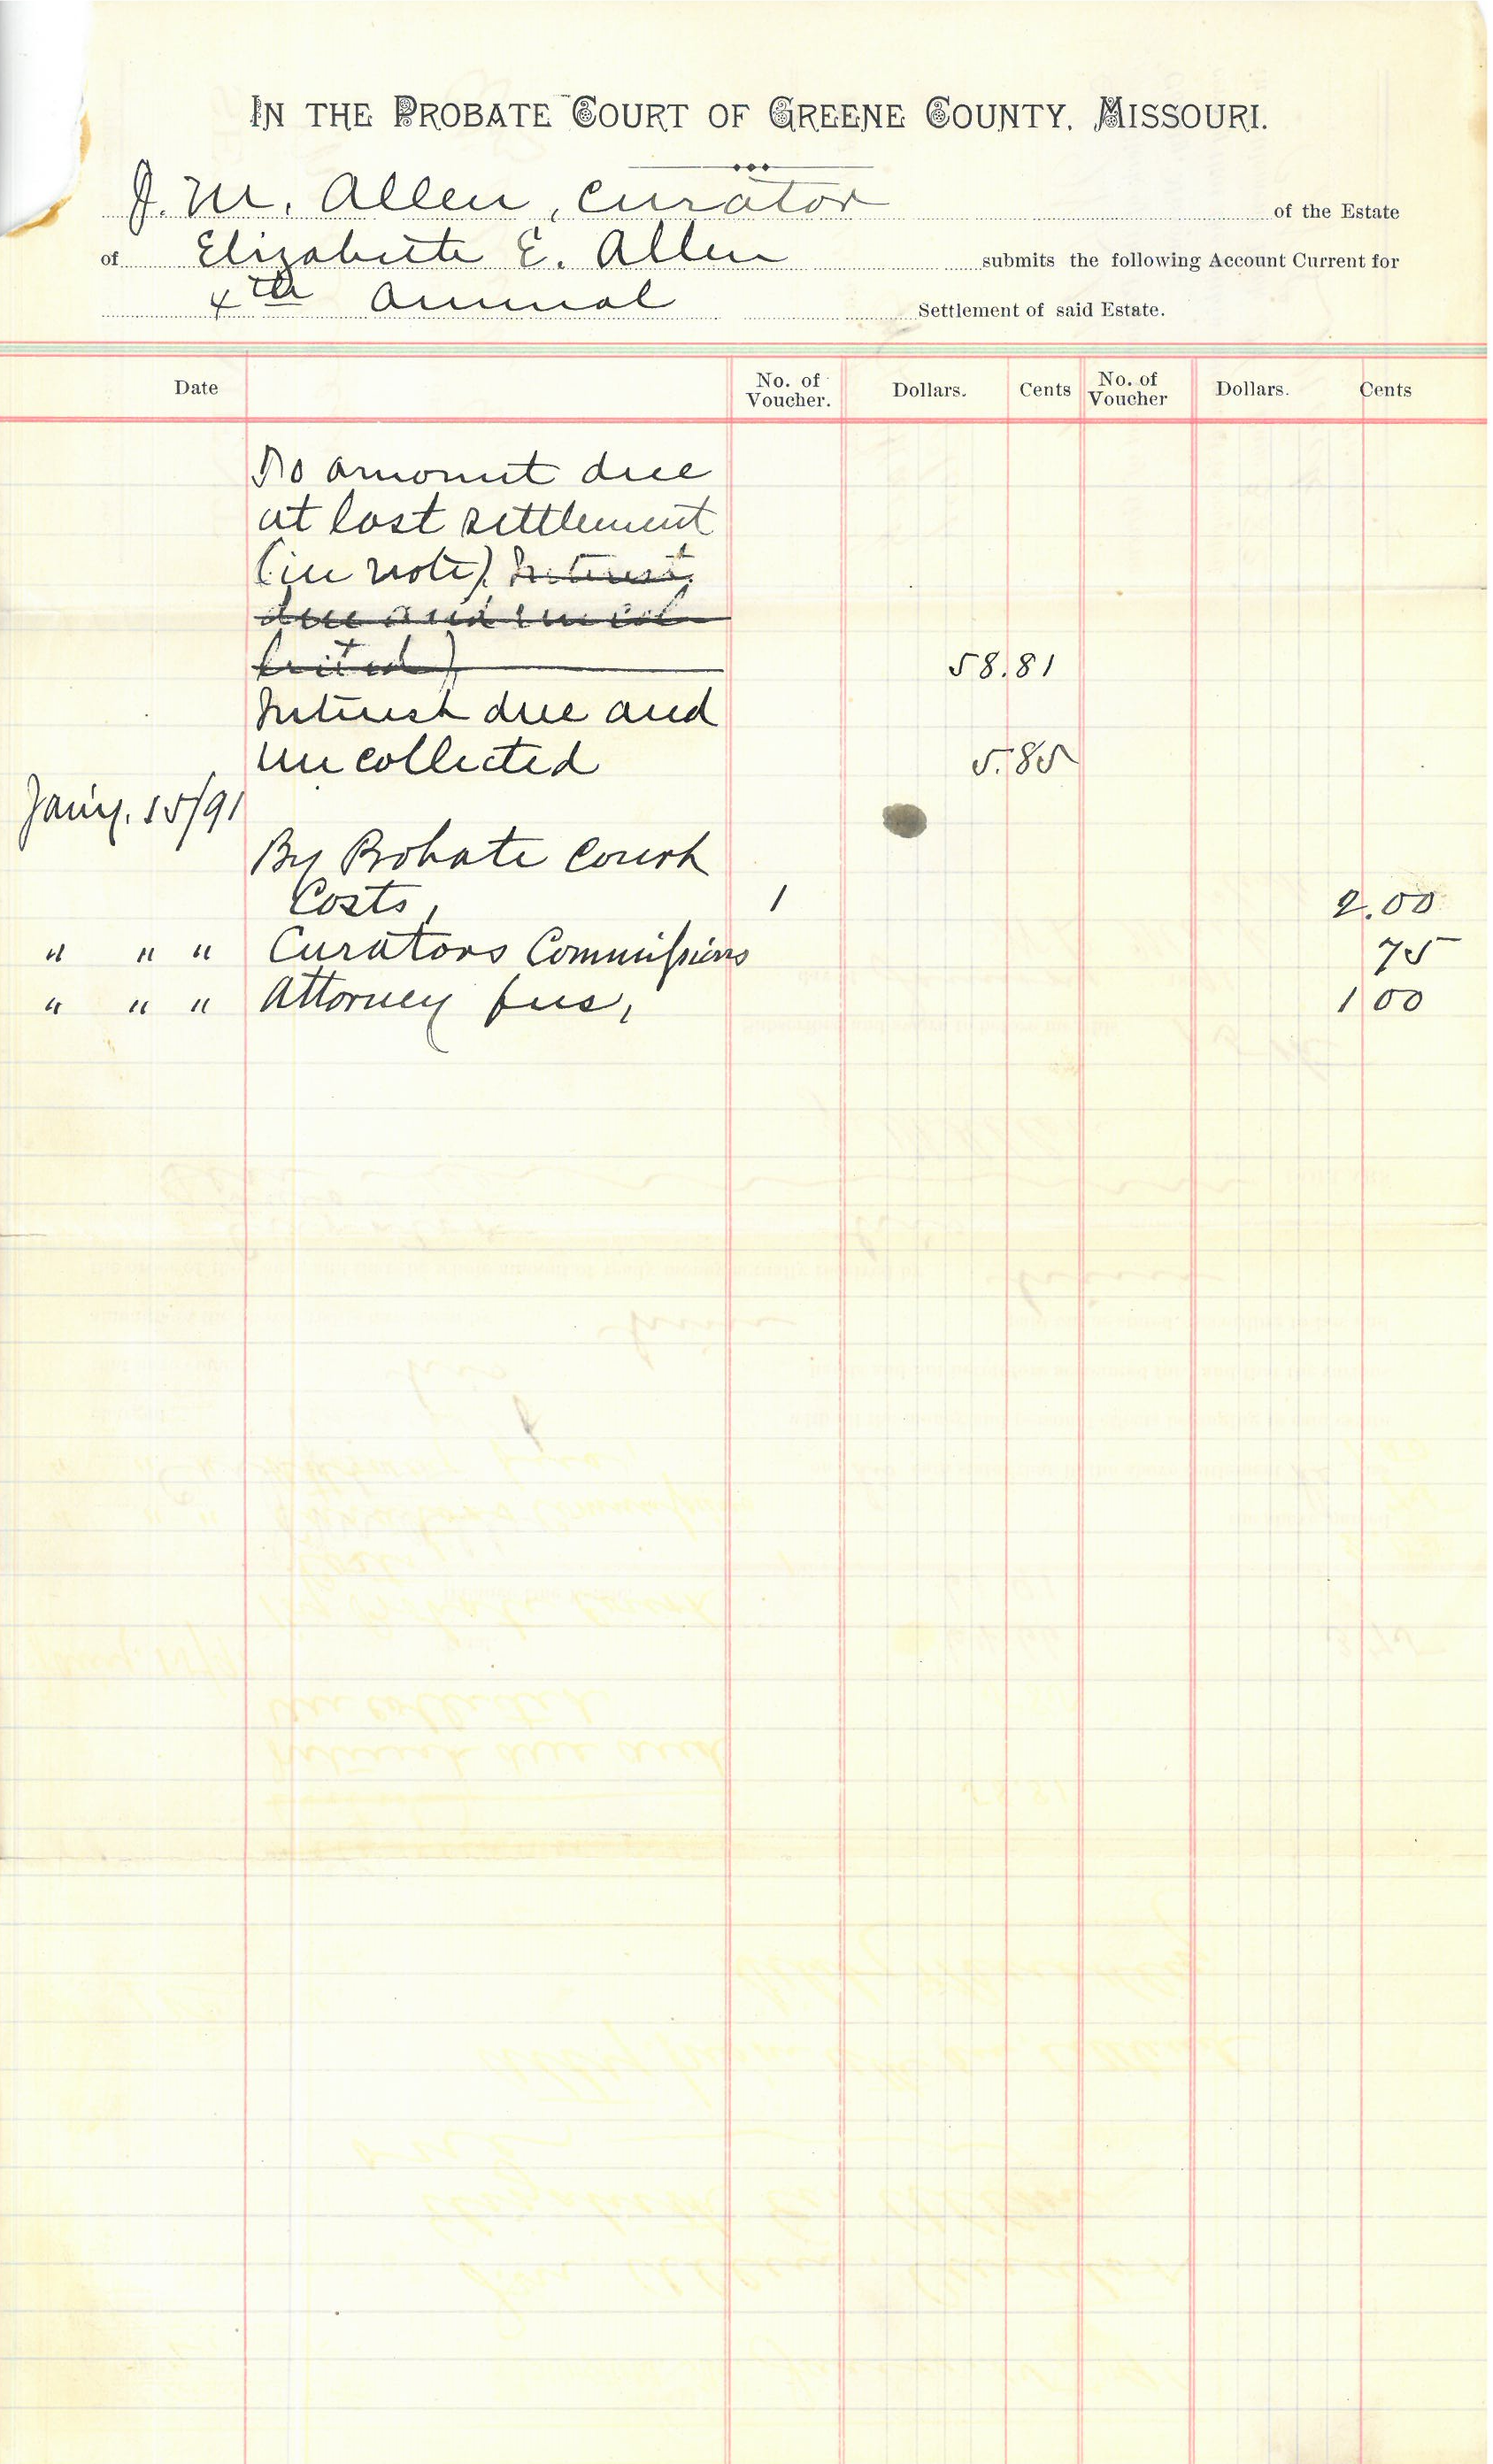 IN THE PROBATE COURT OF GREENE COUNTY, MISSOURI.
J. M. Allen, Curator of the Estate
of Elizabeth E. Allen submits the following Account Current for
4th Annual Settlement of said Estate.
Date No. of Voucher. Dollars. Cents No. of Voucher Dollars. Cents
To amount due
at last settlement
(in note). Interest
due and uncol
lected) 58.81
Interest due and
uncollected 5.85
Jan'y. 15/91
By Probate Court
Costs, 1 2.00
" " " Curators Commissions 75
" " " Attorney fees, 1 00